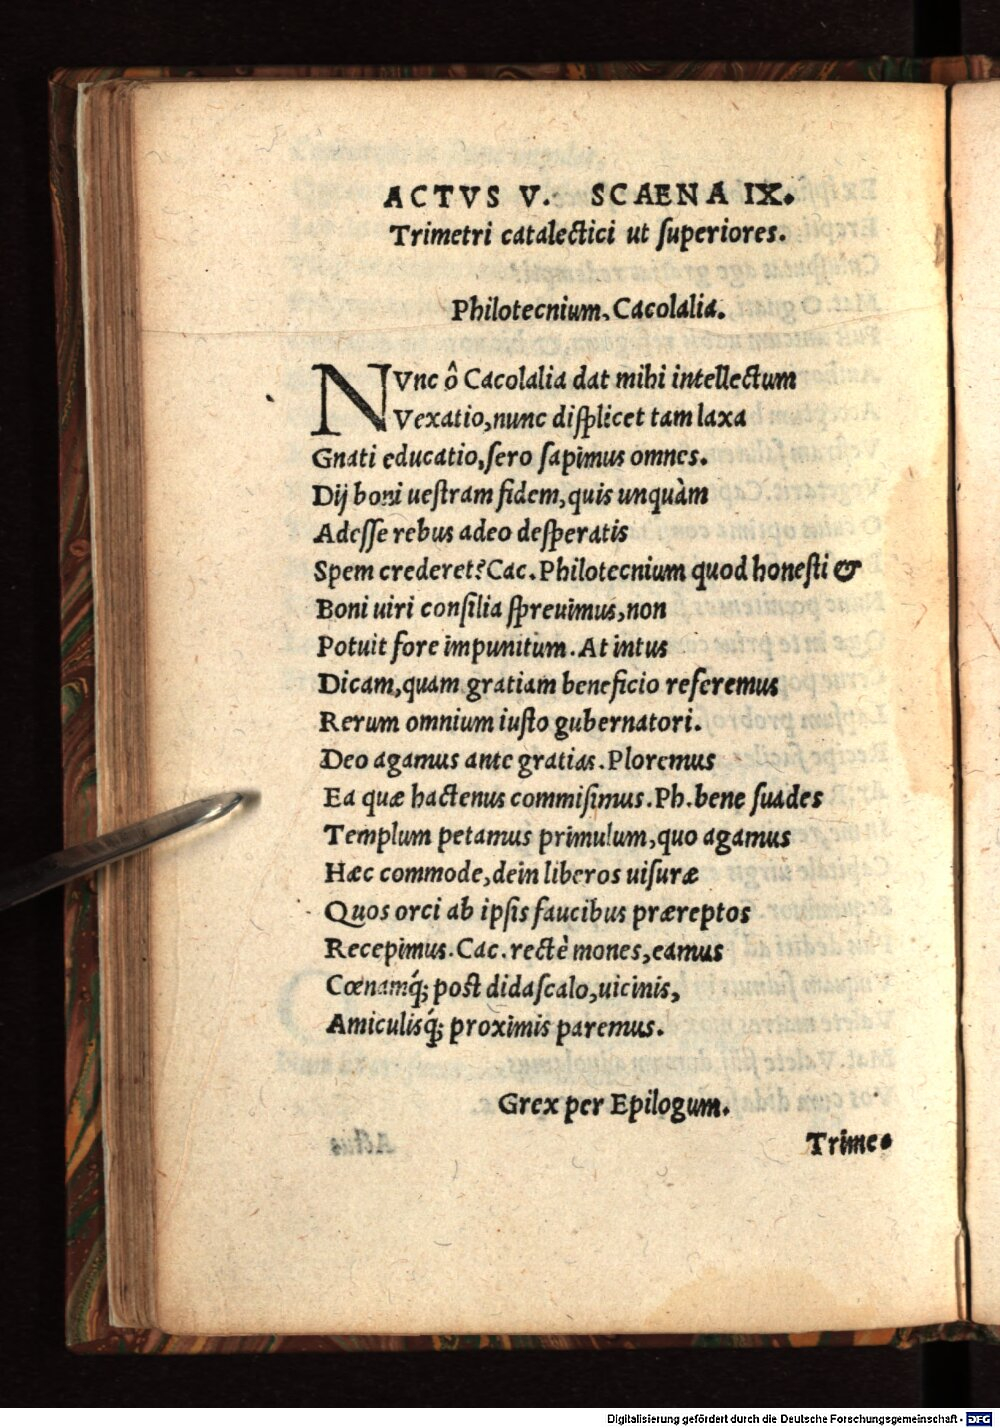 ACTVS V. SCAENA IX.
Trimetri catalectici ut ſuperiores.
Philotecnium, Cacolalia.
NVnc ô Cacolalia dat mihi intellectum
Vexatio, nunc diſplicet tam laxa
Gnati educatio, ſero ſapimus omnes.
Dij boni ueſtram fidem, quis unquàm
Adeſſe rebus adeo deſperatis
Spem crederet? Cac. Philotecnium quod honeſti &
Boni uiri conſilia ſpreuimus, non
Potuit fore impunitum. At intus
Dicam, quam gratiam beneficio referemus
Rerum omnium iuſto gubernatori.
Deo agamus ante gratias. Ploremus
Ea quæ hactenus commiſimus. Ph. bene ſuades
Templum petamus primulum, quo agamus
Hæc commode, dein liberos uiſuræ
Quos orci ab ipſis faucibus præreptos
Recepimus. Cac. rectè mones, eamus
Cœnamq́; post didaſcalo, uicinis,
Amiculisq́; proximis paremus.
Grex per Epilogum.
Trime-
Digitalisierung gefördert durch die Deutsche Forschungsgemeinschaft - DFG